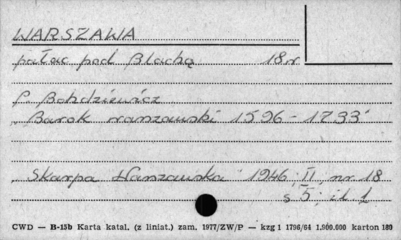 WARSZAWA
pałac pod Blachą 18 w
P Bohdziewicz
„Barok warszawski 1596 - 1733"
„Skarpa Warszawska" 1946, II, nr. 18
s 5; il. 1
CWD — B-15b Karta katal. (z liniat.) zam. 1977/ZW/P — kzg 1 1796/64 1.900.000 karton 180